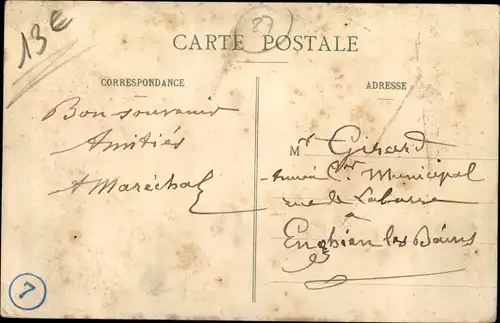 13e
27
CARTE POSTALE
CORRESPONDANCE
ADRESSE
Bon souvenir
Amitiés
A Maréchal
Mr Girard
Ancien Cer Municipal
rue de Labarre
à
Enghien les Bains
7